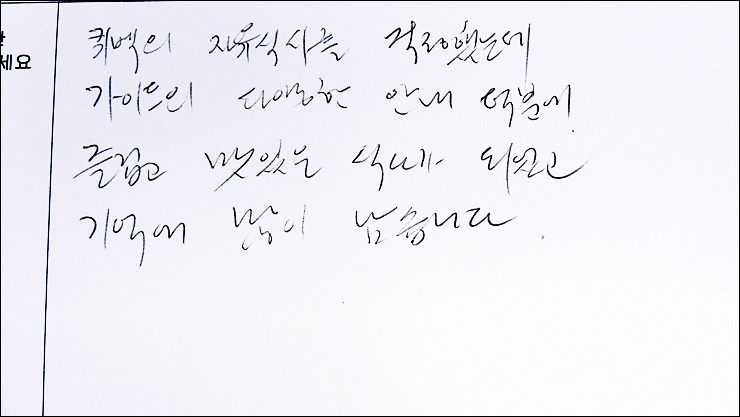 세요
퀘벡의 자유식사를 걱정했는데
가이드의 다양한 안내 덕분에
즐겁고 맛있는 식사가 되었고
기억에 많이 남습니다.